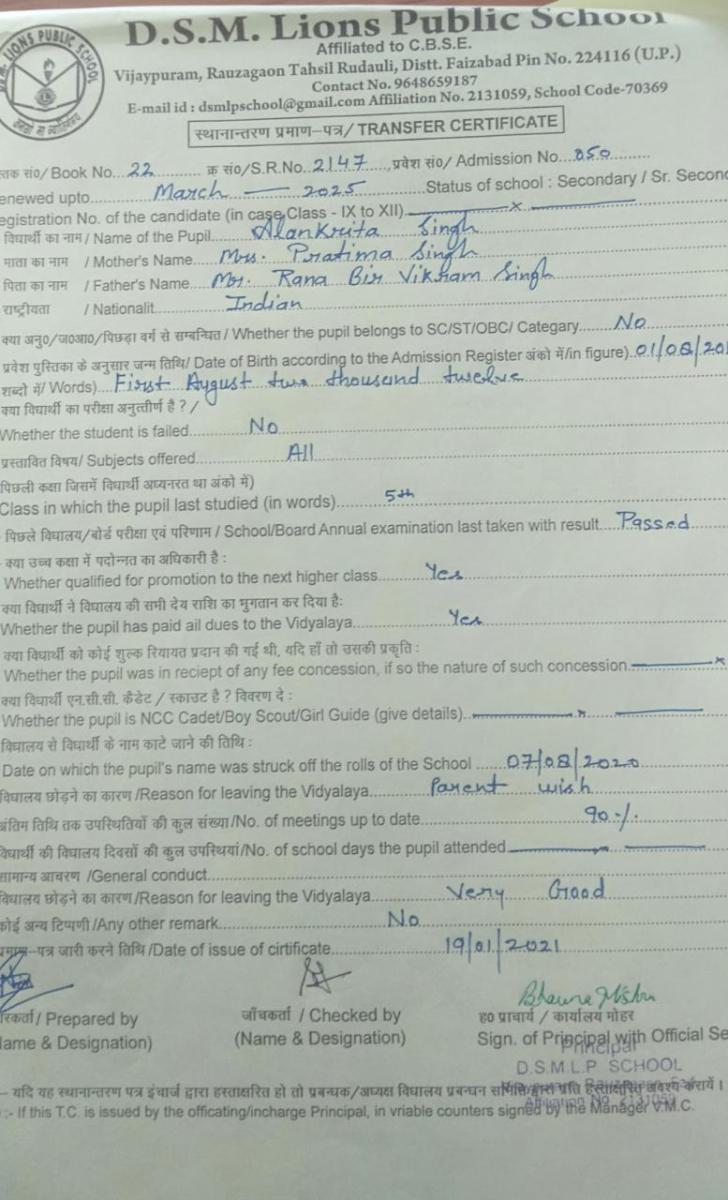 D.S.M. Lions Public School
Affiliated to C.B.S.E.
Vijaypuram, Rauzagaon Tahsil Rudauli, Distt. Faizabad Pin No. 224116 (U.P.)
Contact No. 9648659187
E-mail id : dsmlpschool@gmail.com Affiliation No. 2131059, School Code-70369
स्थानान्तरण प्रमाण–पत्र/ TRANSFER CERTIFICATE
स्तक सं0/ Book No...22 क्र सं0/S.R.No..2147 प्रवेश सं0/ Admission No...050
enewed upto March — 2025 Status of school : Secondary / Sr. Second
egistration No. of the candidate (in case Class - IX to XII) x
विद्यार्थी का नाम / Name of the Pupil Alankrita Singh
माता का नाम / Mother's Name Mrs. Pratima Singh
पिता का नाम / Father's Name Mr. Rana Bir Vikram Singh
राष्ट्रीयता / Nationalit Indian
क्या अनु0/ज0आ0/पिछड़ा वर्ग से सम्बन्धित / Whether the pupil belongs to SC/ST/OBC/ Categary No
प्रवेश पुस्तिका के अनुसार जन्म तिथि/ Date of Birth according to the Admission Register अंको में/in figure) 01/08/201
शब्दों में/ Words) First August two thousand twelve
क्या विद्यार्थी का परीक्षा अनुत्तीर्ण है ? /
Whether the student is failed No
प्रस्तावित विषय/ Subjects offered All
पिछली कक्षा जिसमें विद्यार्थी अध्यनरत था अंको में)
Class in which the pupil last studied (in words) 5th
पिछले विद्यालय/बोर्ड परीक्षा एवं परिणाम / School/Board Annual examination last taken with result Passed
क्या उच्च कक्षा में पदोन्नत का अधिकारी है :
Whether qualified for promotion to the next higher class Yes
क्या विद्यार्थी ने विद्यालय की सभी देय राशि का भुगतान कर दिया है:
Whether the pupil has paid ail dues to the Vidyalaya Yes
क्या विद्यार्थी को कोई शुल्क रियायत प्रदान की गई थी, यदि हाँ तो उसकी प्रकृति :
Whether the pupil was in reciept of any fee concession, if so the nature of such concession x
क्या विद्यार्थी एन.सी.सी. कैडेट / स्काउट है ? विवरण दे :
Whether the pupil is NCC Cadet/Boy Scout/Girl Guide (give details) x
विद्यालय से विद्यार्थी के नाम काटे जाने की तिथि :
Date on which the pupil's name was struck off the rolls of the School 07/08/2020
विद्यालय छोड़ने का कारण /Reason for leaving the Vidyalaya Parent wish
अंतिम तिथि तक उपस्थितियों की कुल संख्या /No. of meetings up to date 90%
विद्यार्थी की विद्यालय दिवसों की कुल उपस्थियां/No. of school days the pupil attended
सामान्य आचरण /General conduct
विद्यालय छोड़ने का कारण/Reason for leaving the Vidyalaya Very Good
कोई अन्य टिप्पणी /Any other remark No
प्रमाण–पत्र जारी करने तिथि /Date of issue of cirtificate 19/01/2021
Bhawna Mishra
रकर्ता / Prepared by जाँचकर्ता / Checked by ह0 प्राचार्य / कार्यालय मोहर
ame & Designation) (Name & Designation) Sign. of Principal with Official Se
Principal
D.S.M L.P SCHOOL
– यदि यह स्थानान्तरण पत्र इंचार्ज द्वारा हस्ताक्षरित हो तो प्रबन्धक/अध्यक्ष विद्यालय प्रबन्धन समिति द्वारा प्रति हस्ताक्षरित अवश्य करायें ।
Affiliation No. 2131059
:- If this T.C. is issued by the officating/incharge Principal, in vriable counters signed by the Manager V.M.C.